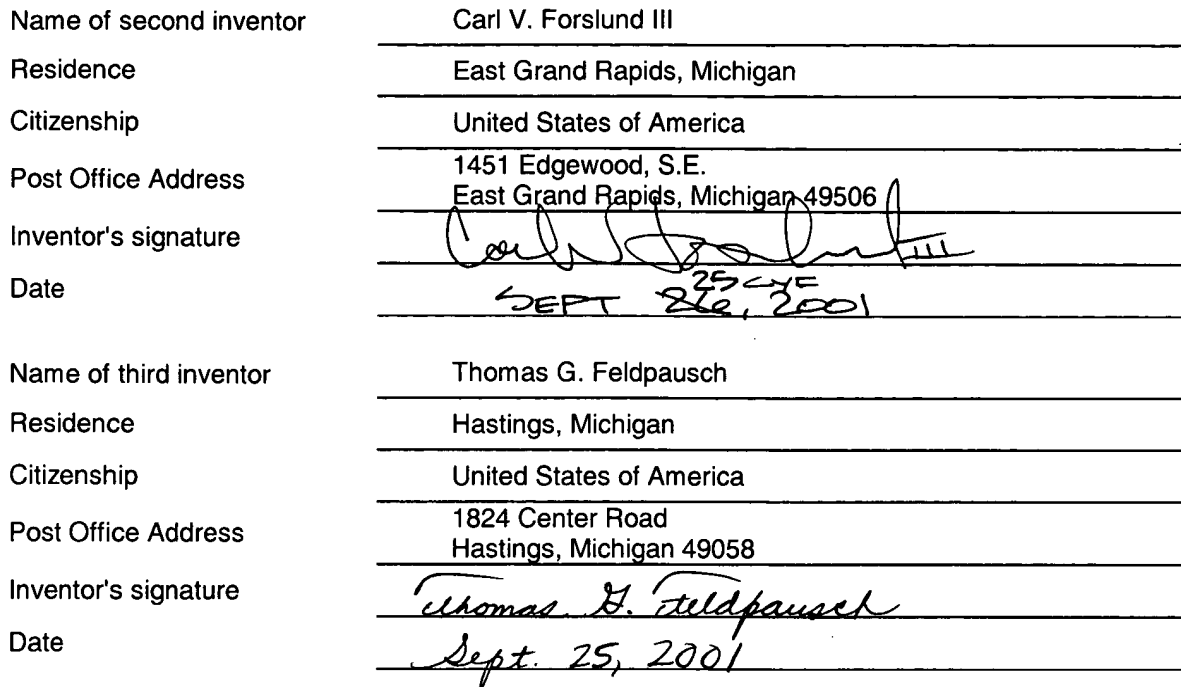 Name of second inventor Carl V. Forslund III
Residence East Grand Rapids, Michigan
Citizenship United States of America
Post Office Address 1451 Edgewood, S.E.
East Grand Rapids, Michigan 49506
Inventor's signature Carl V Forslund III
25 CVF
Date SEPT 26, 2001
Name of third inventor Thomas G. Feldpausch
Residence Hastings, Michigan
Citizenship United States of America
Post Office Address 1824 Center Road
Hastings, Michigan 49058
Inventor's signature Thomas G. Feldpausch
Date Sept. 25, 2001